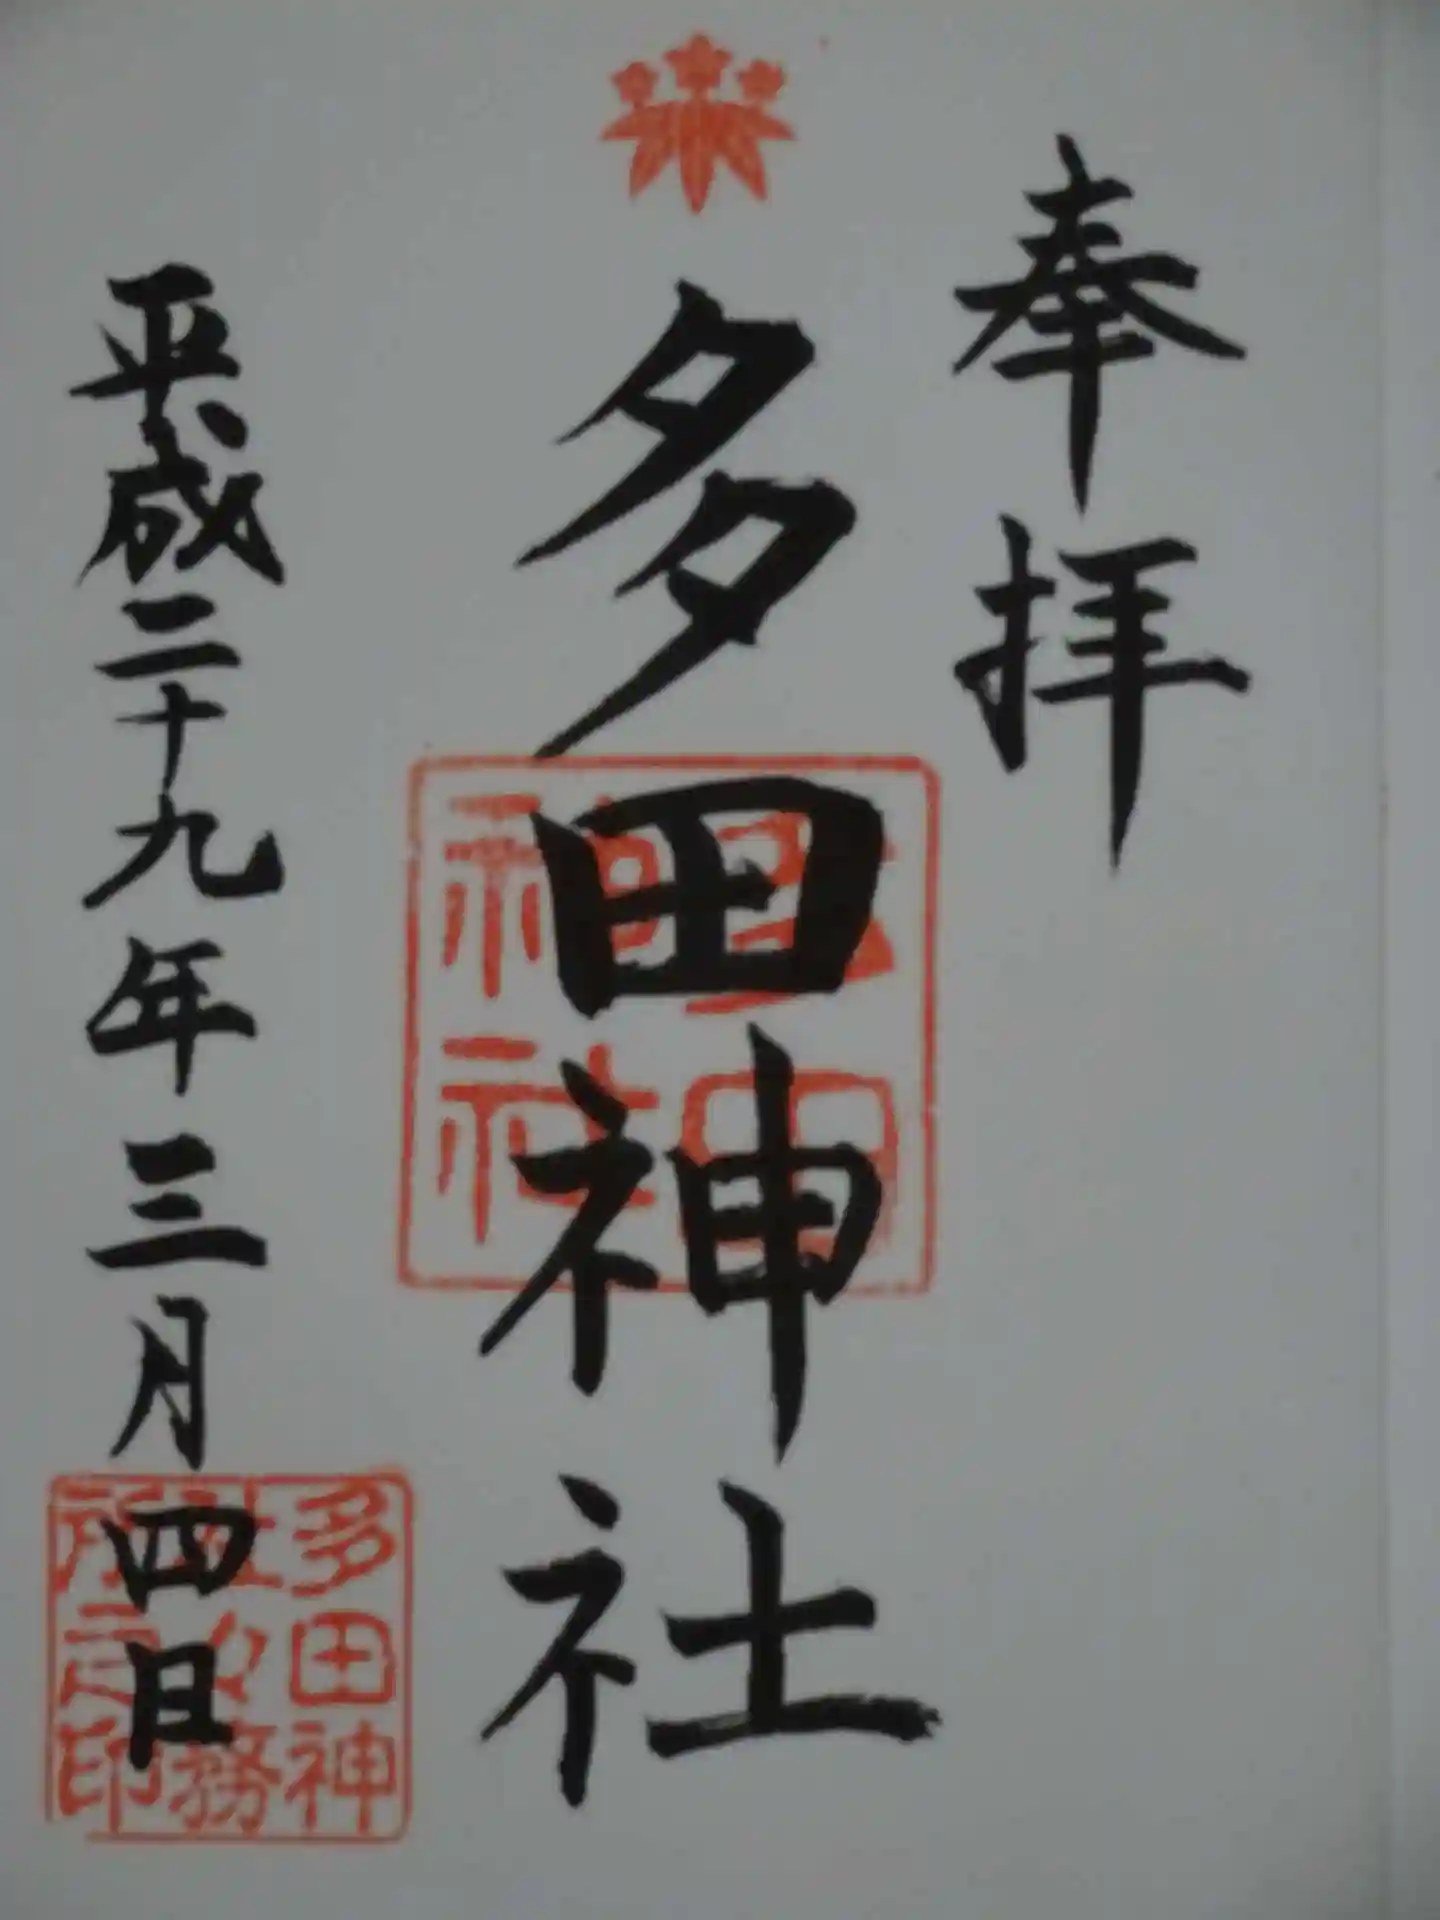 奉拝
多田神社
多田神社
平成二十九年三月四日
多田神
社々務
所之印